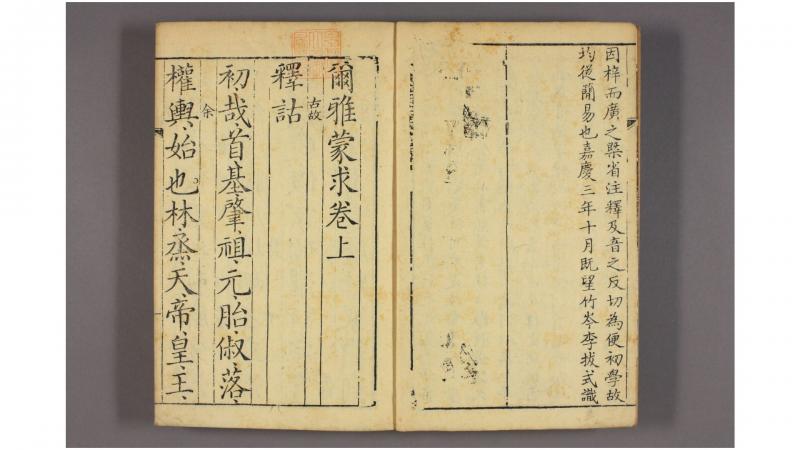 因梓而廣之槩省注釋及音之反切為便初學故
均從簡易也嘉慶三年十月既望竹岑李拔式識
爾雅蒙求卷上
釋詁古故
初、哉、首、基、肇、祖、元、胎、俶、落、
權輿、余始也。林、烝、天、帝、皇、王、